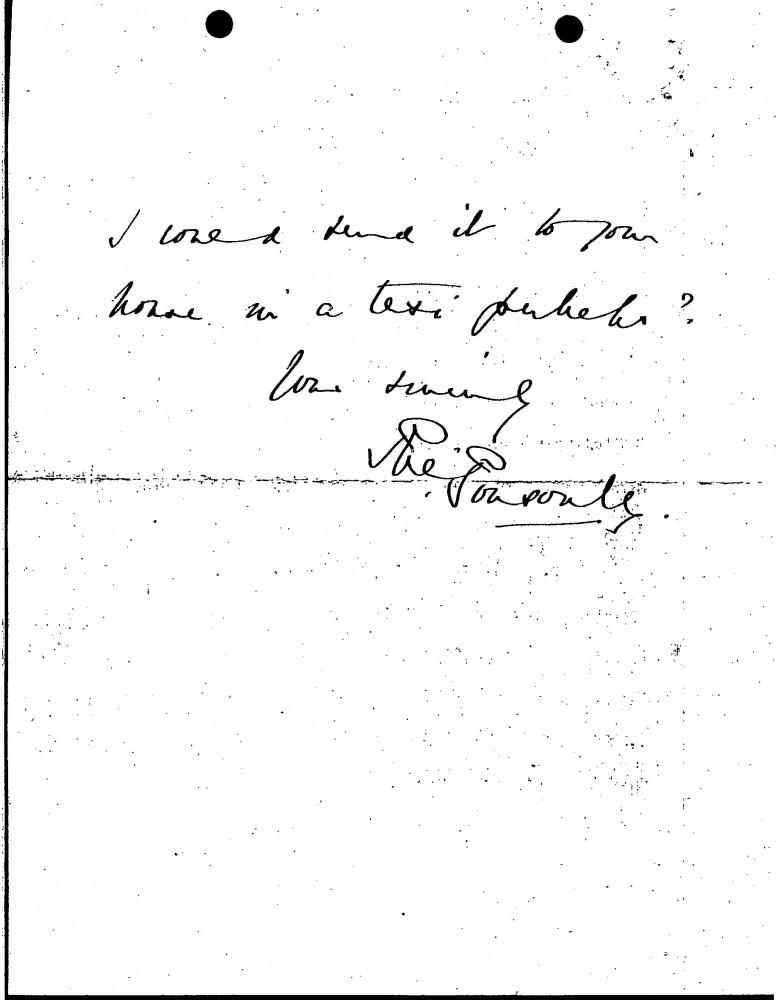 I could send it to your
house in a taxi perhaps?
Yours sincerely
Ponsonby.